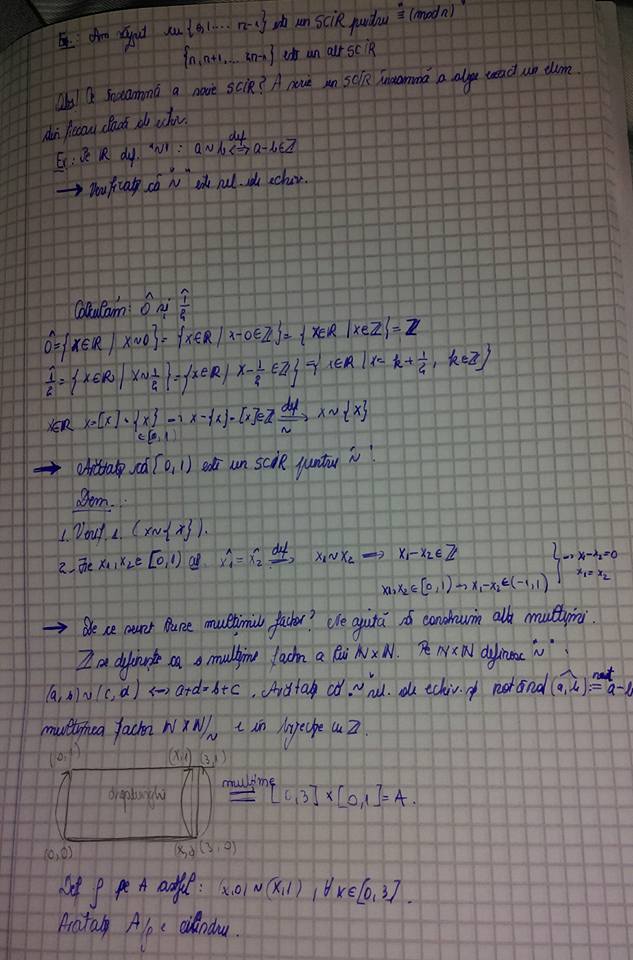 Ex.: Am văzut cu {0,1,.... n-1} este un SCIR pentru "≡ (mod n)"
{n, n+1, ... 2n-1} este un alt SCIR
Obs! Ce înseamnă a scrie SCIR? A scrie un SCIR înseamnă a alege exact un elem.
din fiecare clasă de echiv.
Ex: Pe ℝ def. "~" : a~b <=def=> a-b∈ℤ
→ Verificați că "~" este rel. de echiv.
Calculăm: 0̂ și 1/2̂
0̂ = {x∈ℝ | x~0} = {x∈ℝ | x-0∈ℤ} = {x∈ℝ | x∈ℤ} = ℤ
1/2̂ = {x∈ℝ | x~1/2} = {x∈ℝ | x-1/2∈ℤ} = {x∈ℝ | x = k+1/2, k∈ℤ}
x∈ℝ x=[x]+{x} → x-{x}=[x]∈ℤ =def ~=> x~{x}
∈[0,1)
→ Arătați că [0,1) este un SCIR pentru "~".
Dem.:
1. Verif. 1. (x~{x}).
2. Fie x₁,x₂∈[0,1) aî x̂₁=x̂₂ =def=> x₁~x₂ → x₁-x₂∈ℤ
x₁,x₂∈[0,1) → x₁-x₂∈(-1,1) } → x₁-x₂=0
x₁=x₂
→ De ce sunt bune mulțimile factor? Ne ajută să construim alte mulțimi.
ℤ se definește ca o mulțime factor a lui ℕ×ℕ. Pe ℕ×ℕ definesc "~":
(a,b)~(c,d) <-> a+d=b+c. Arătați că "~" rel. de echiv. și notând (a,b)̂ :=not a-b
mulțimea factor ℕ×ℕ/~ e în bijecție cu ℤ.
(0,1) (x,1) (3,1)
mulțime = [0,3]×[0,1]=A.
(0,0) (x,0) (3,0)
Def ρ pe A astfel: (x,0)~(x,1), ∀x∈[0,3].
Arătați A/ρ e cilindru.